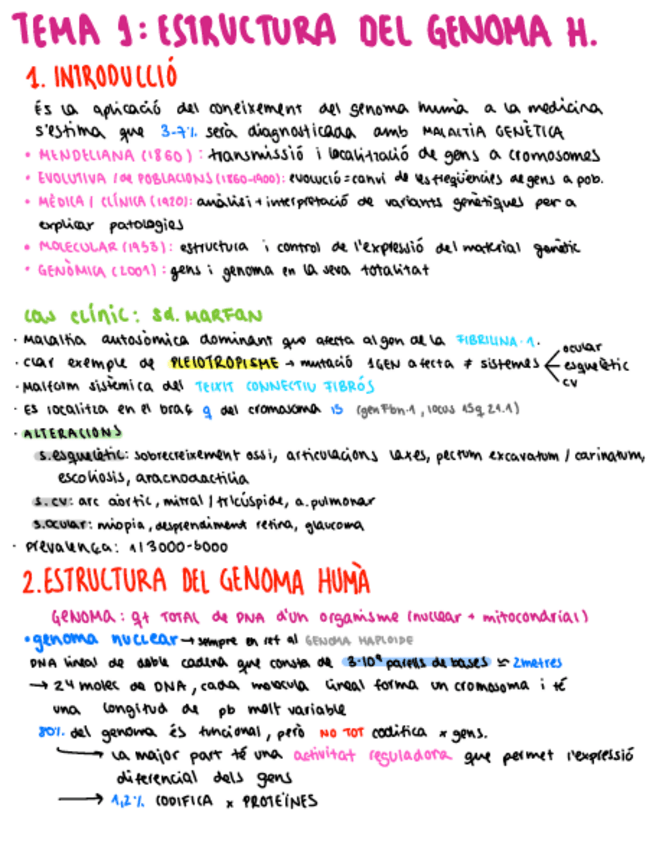 TEMA 1: ESTRUCTURA DEL GENOMA H.
1. INTRODUCCIÓ
És la aplicació del coneixement del genoma humà a la medicina
s'estima que 3-7% serà diagnosticada amb MALALTIA GENÈTICA
• MENDELIANA (1860): transmissió i localització de gens a cromosomes
• EVOLUTIVA / de POBLACIONS (1860-1900): evolució = canvi de les freqüències de gens a pob.
• MÈDICA / CLÍNICA (1920): anàlisi + interpretació de variants genètiques per a
explicar patologies
• MOLECULAR (1953): estructura i control de l'expressió del material genètic
• GENÒMICA (2001): gens i genoma en la seva totalitat
Cas clínic: Sd. MARFAN
· Malaltia autosòmica dominant que afecta al gen de la FIBRILINA-1.
· Clar exemple de PLEIOTROPISME → mutació 1GEN afecta ≠ sistemes
ocular
esquelètic
cv
· Malform sistèmica del TEIXIT CONNECTIU FIBRÓS
· Es localitza en el braç q del cromosoma 15 (gen Fbn-1, locus 15q 21.1)
· ALTERACIONS
s.esquelètic: sobrecreixement ossi, articulacions laxes, pectum excavatum / carinatum,
escoliosis, aracnodactilia
s.cv: arc aòrtic, mitral / tricúspide, a.pulmonar
s.ocular: miopia, despreniment retina, glaucoma
· Prevalença: 1/3000-5000
2. ESTRUCTURA DEL GENOMA HUMÀ
GENOMA: qt TOTAL de DNA d'un organisme (nuclear + mitocondrial)
• genoma nuclear → sempre en ref al GENOMA HAPLOIDE
DNA lineal de doble cadena que consta de 3·10⁹ parells de bases ≃ 2metres
→ 24 molec de DNA, cada molècula lineal forma un cromosoma i té
una longitud de pb molt variable
80% del genoma és funcional, però NO TOT codifica x gens.
→ la major part té una activitat reguladora que permet l'expressió
diferencial dels gens
→ 1,2% CODIFICA x PROTEÏNES